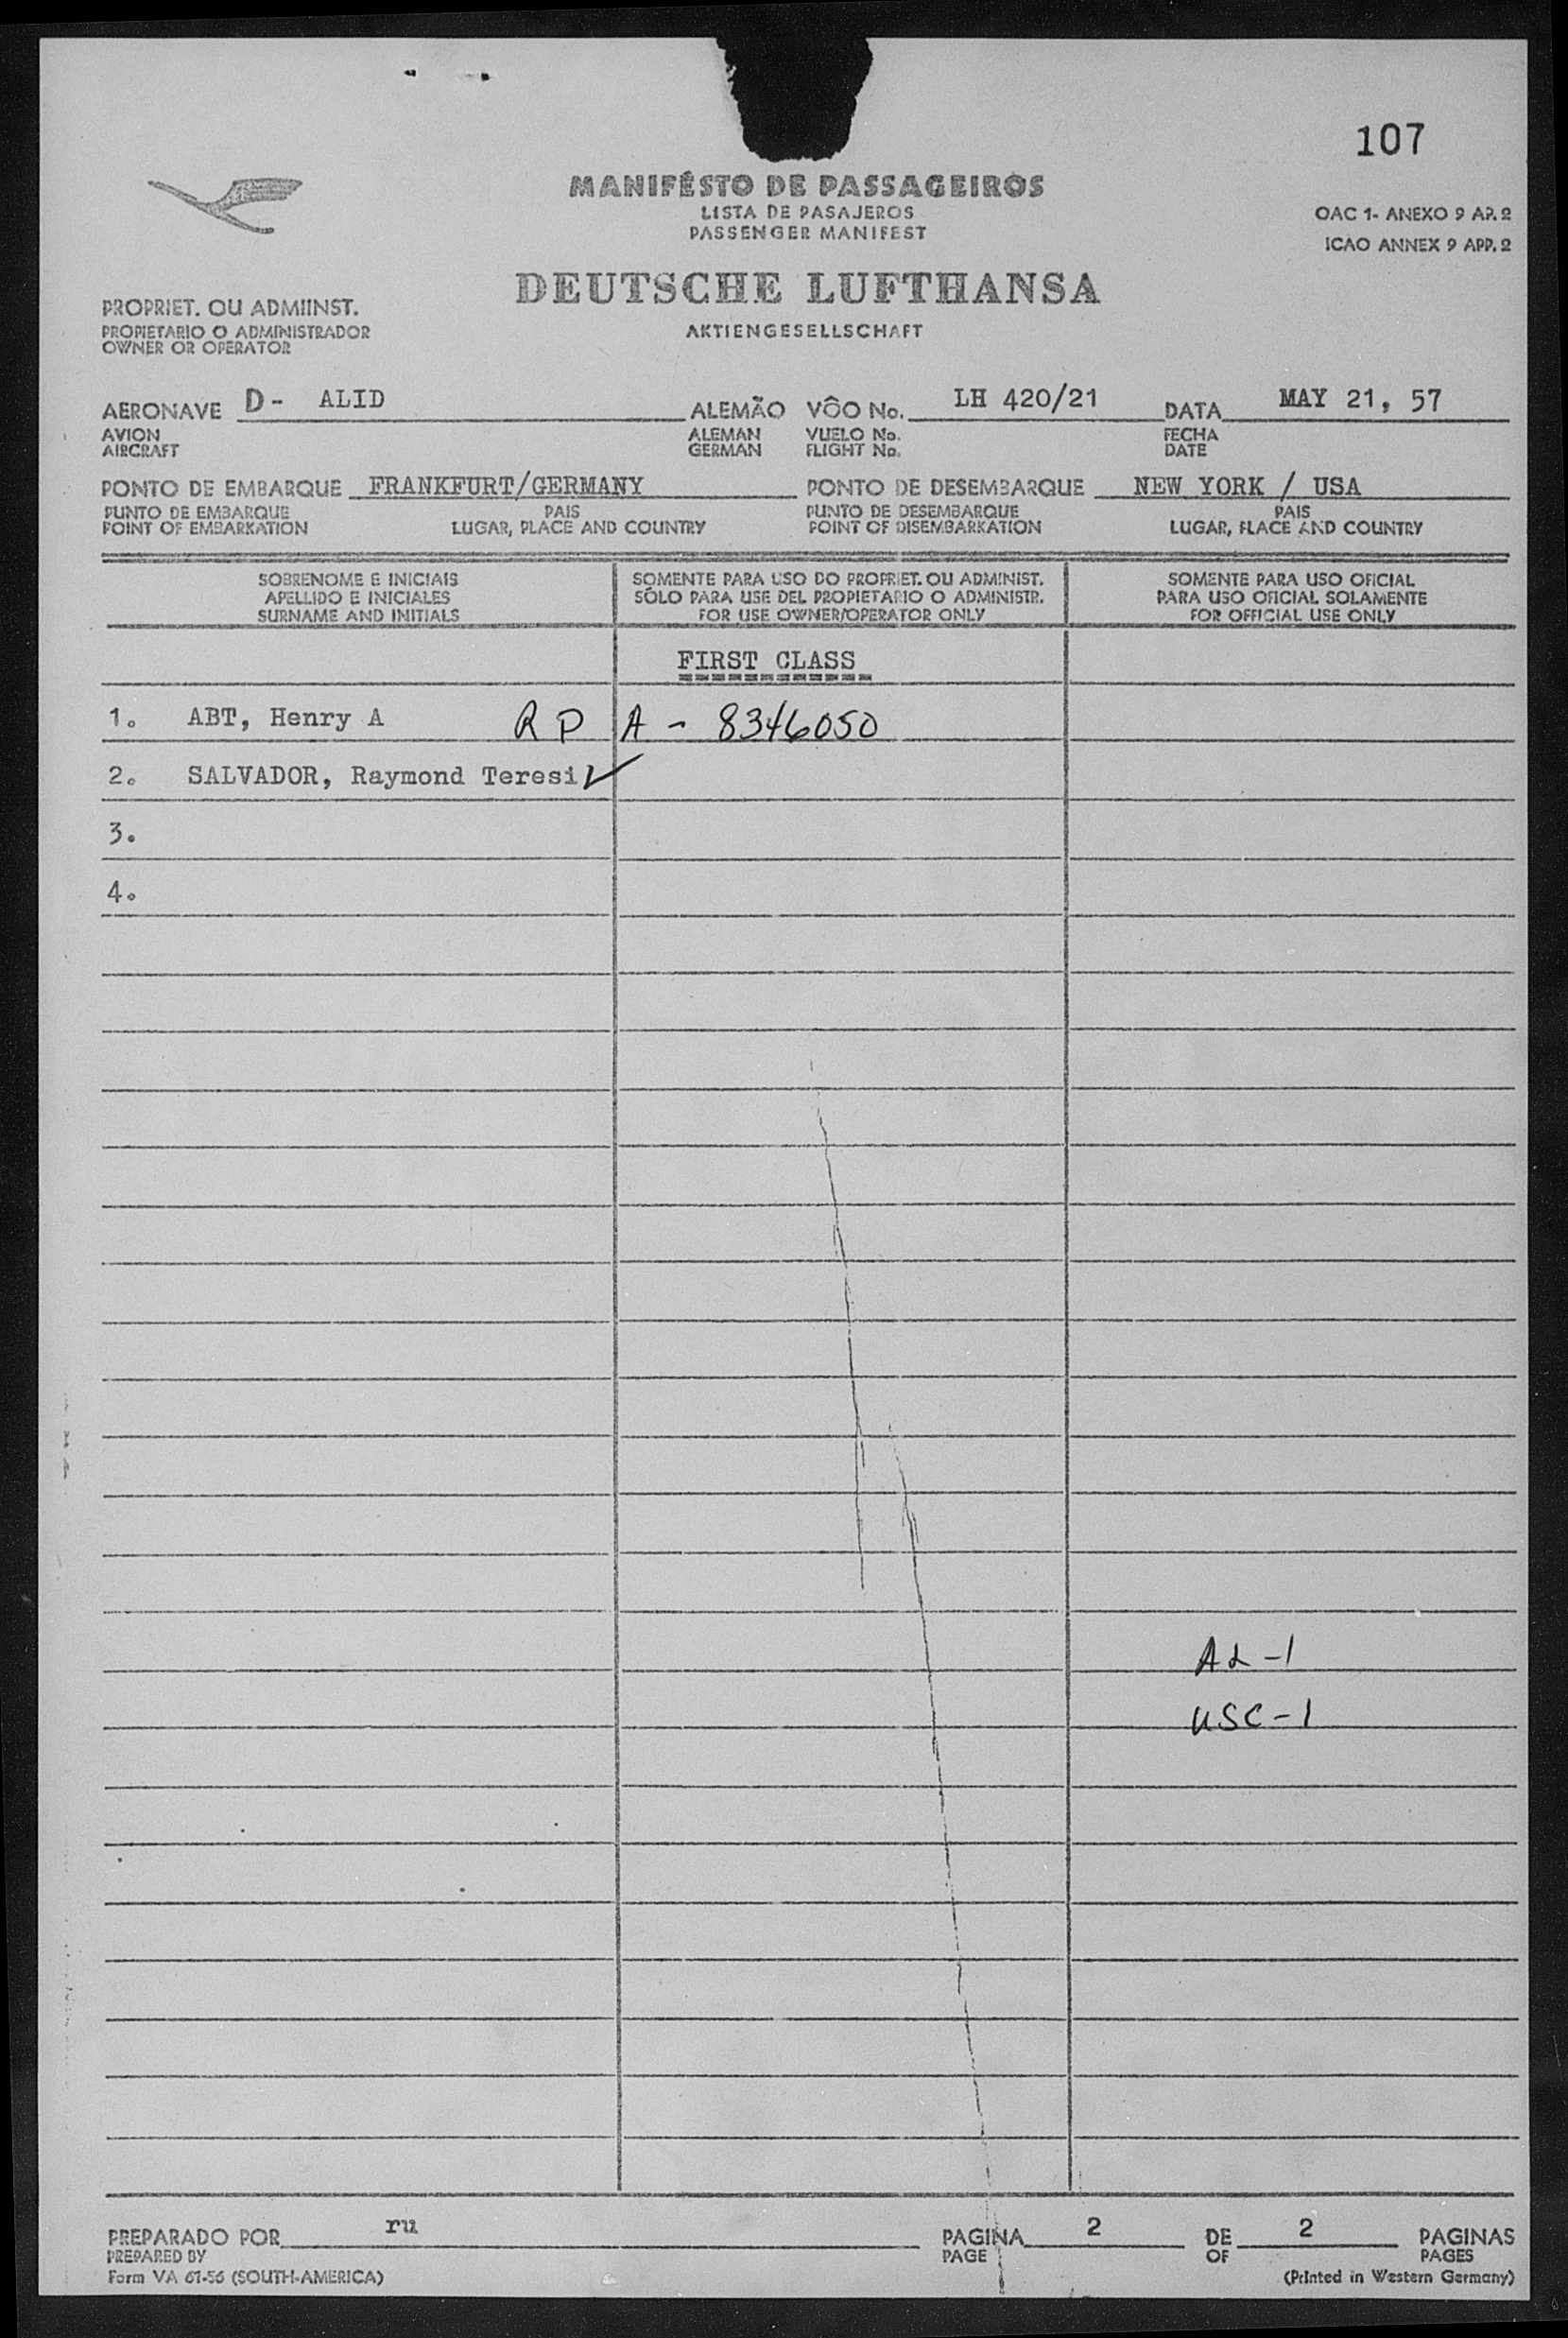 107
MANIFÉSTO DE PASSAGEIROS
LISTA DE PASAJEROS
PASSENGER MANIFEST
OAC 1- ANEXO 9 AP. 2
ICAO ANNEX 9 APP. 2
DEUTSCHE LUFTHANSA
AKTIENGESELLSCHAFT
PROPRIET. OU ADMIINST.
PROPIETARIO O ADMINISTRADOR
OWNER OR OPERATOR
AERONAVE D- ALID ALEMÃO VÔO No. LH 420/21 DATA MAY 21, 57
AVION ALEMAN VUELO No. FECHA
AIRCRAFT GERMAN FLIGHT No. DATE
PONTO DE EMBARQUE FRANKFURT/GERMANY PONTO DE DESEMBARQUE NEW YORK / USA
PUNTO DE EMBARQUE PAIS PUNTO DE DESEMBARQUE PAIS
POINT OF EMBARKATION LUGAR, PLACE AND COUNTRY POINT OF DISEMBARKATION LUGAR, PLACE AND COUNTRY
SOBRENOME E INICIAIS SOMENTE PARA USO DO PROPRIET. OU ADMINIST. SOMENTE PARA USO OFICIAL
APELLIDO E INICIALES SÓLO PARA USE DEL PROPIETARIO O ADMINISTR. PARA USO OFICIAL SOLAMENTE
SURNAME AND INITIALS FOR USE OWNER/OPERATOR ONLY FOR OFFICIAL USE ONLY
FIRST CLASS
1. ABT, Henry A RP A - 8346050
2. SALVADOR, Raymond Teresi
3.
4.
AL-1
USC-1
PREPARADO POR ru PAGINA 2 DE 2 PAGINAS
PREPARED BY PAGE OF PAGES
Form VA 61-56 (SOUTH-AMERICA) (Printed in Western Germany)